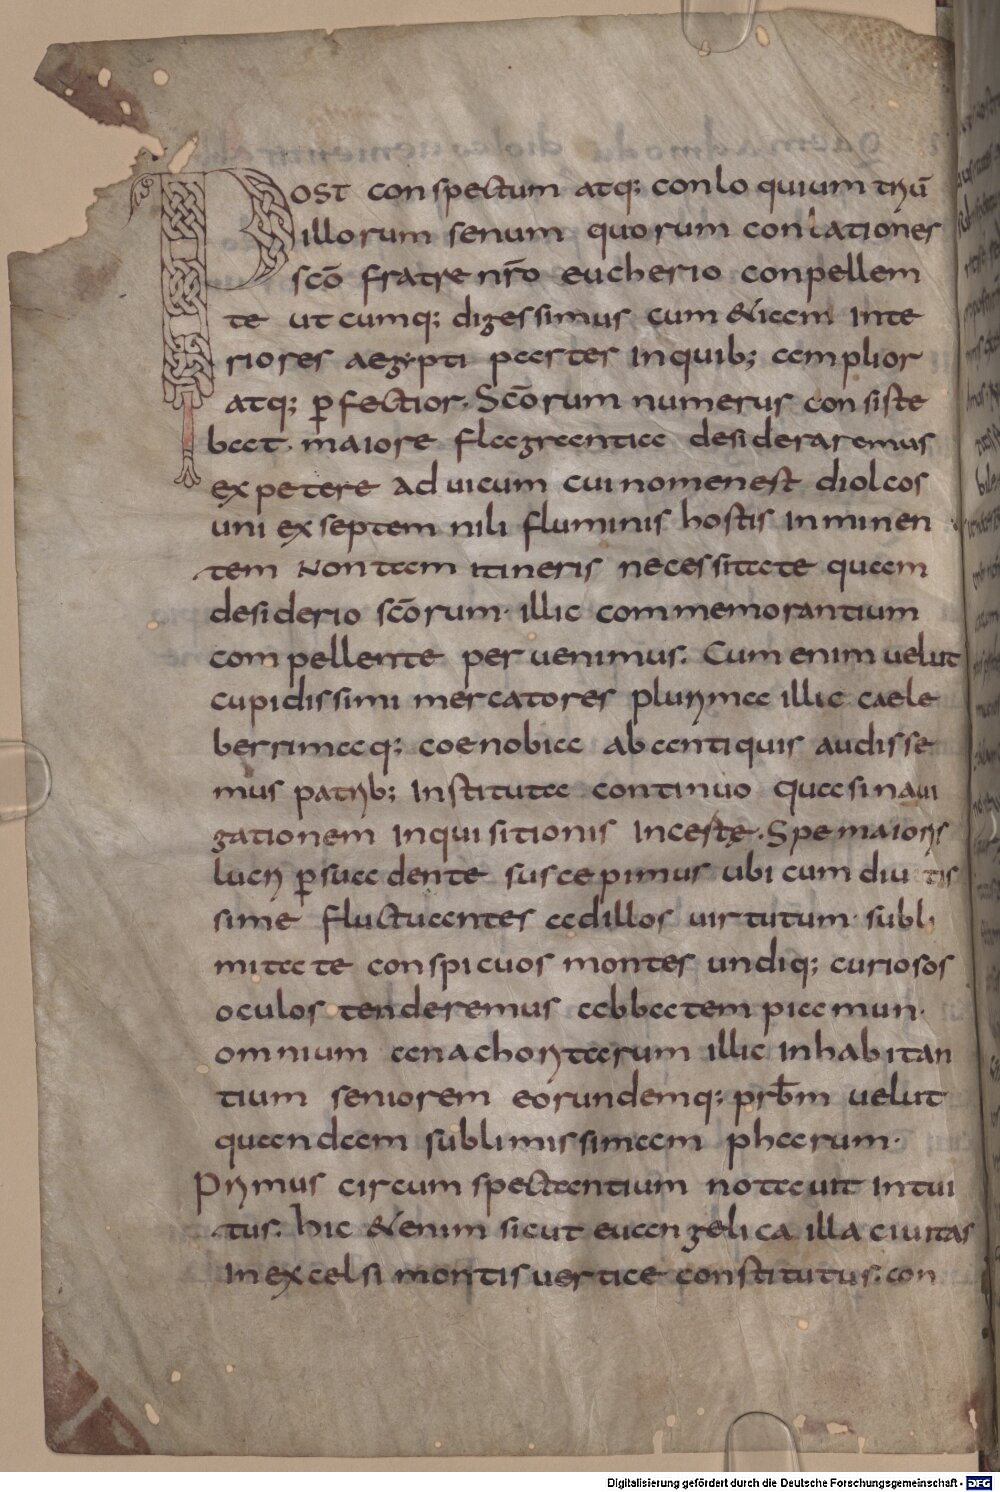 Post conspectum atq; conloquium triū
illorum senum quorum conlationes
scō fratre nr̄o eucherio conpellen
te utcumq; digessimus cum &iam inte
riores aegypti partes inquib; amplior
atq; p̄fectior. Scōrum numerus consiste
bat. maiore flagrantia desideraremus
expetere ad uicum cui nomen est diolcos
uni ex septem nili fluminis hostis inminen
tem Non tam itineris necessitate quam
desiderio scōrum. illic commemorantium
compellente peruenimus. Cum enim uelut
cupidissimi mercatores plurima illic caele
berrimaq; coenobia ab antiquis audisse
mus patrib; Instituta continuo quasi naui
gationem inquisitionis incestę. Spe maioris
lucri p̄suadente suscepimus ubi cum diutis
sime fluctuantes ad illos uirtutum subli
mitate conspicuos montes undiq; curiosos
oculos tenderemus abbatem piamun.
omnium anachoritarum illic inhabitan
tium seniorem eorundemq; prb̄m uelut
quandam sublimissimam pharum.
Primus circumspectantium notauit intui
tus. hic &enim sicut euangelica illa ciuitas
In excelsi montis uertice constitutus. con
Digitalisierung gefördert durch die Deutsche Forschungsgemeinschaft - DFG